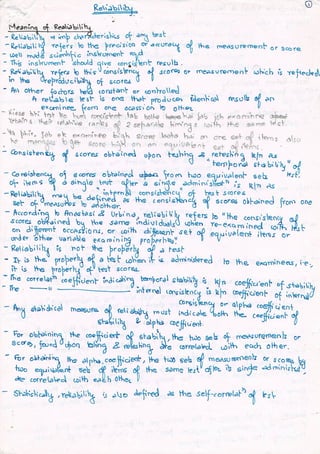 Reliability
Meaning of Reliability
- Reliability → imp characteristic of any test
- Reliability refers to the precision or accuracy of the measurement or score
- Well made scientific instrument
- This instrument should give consistent results.
- Reliability refers to this consistency of scores or measurement which is reflected in the reproducibility of scores
- All other factors held constant or controlled
A reliable test is one that produces identical results of an
examinee from one occasion to other
retains relative ranks of 2 separate timings with the same test.
on one set of items also
to get score high on an equivalent set of items.
- Consistency of scores obtained upon testing & retesting k/n as
"temporal stability" of
- Consistency of scores obtained from two equivalent sets test.
of items of a single test after a single administration is k/n as
"internal consistency" of test scores.
- Reliability may be defined as the consistency of scores obtained from one
set of measures to another.
- According to Anastasi & Urbina, reliability refers to "the consistency of
scores obtained by the same individuals when re-examined with test
on different occasions, or with different set of equivalent items or
under other variable examining
- Reliability is not the property of a test
- It is the property of a test when it is administered to the examinees, i.e.
it is the property of test scores.
- The correlatn coefficient indicating temporal stability is k/n coefficient of stability
- The —— " —— internal consistency is k/n coefficient of internal
consistency or alpha coefficient
- Any statistical measure of reliability must indicate both the coefficient of
stability & alpha coefficient.
- For obtaining the coefficient of stability, the two sets of measurements or
scores, found upon testing & retesting are correlated with each other.
- For obtaining the alpha coefficient, the two sets of measurements or scores by
two equivalent sets of items of the same test after its single administratn
are correlated with each other
- Statistically, reliability is also defined as the self-correlatn of test